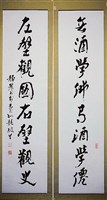 無酒學佛有酒學僊
左壁觀圖右壁觀史